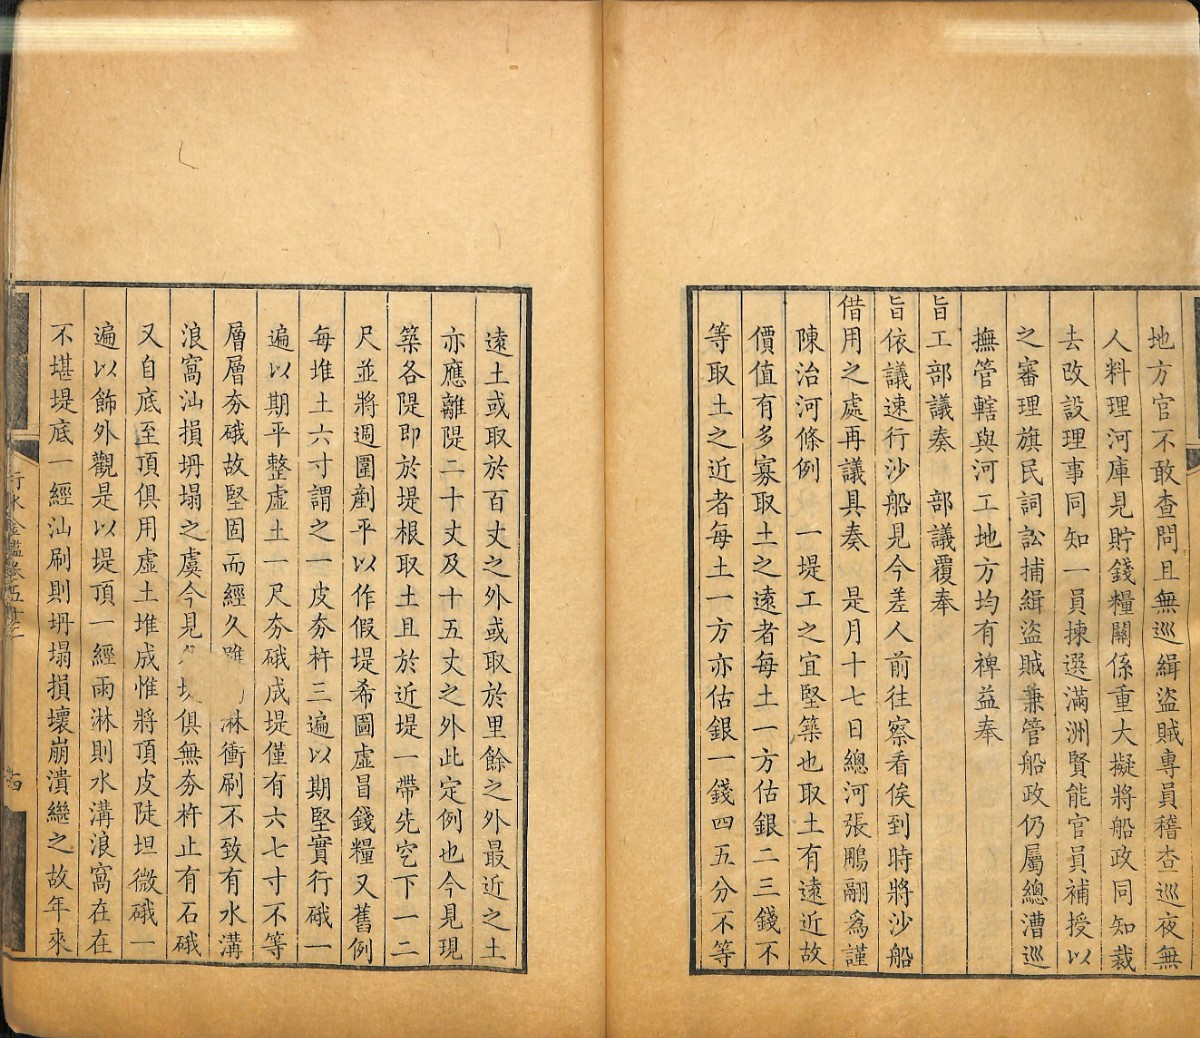 地方官不敢查問且無巡緝盜賊專員稽查巡夜無
人料理河庫見貯錢糧關係重大擬將船政同知裁
去改設理事同知一員揀選滿洲賢能官員補授以
之審理旗民詞訟捕緝盜賊兼管船政仍屬總漕巡
撫管轄與河工地方均有裨益奉
旨工部議奏　部議覆奉
旨依議速行沙船見今差人前往察看俟到時將沙船
借用之處再議具奏　是月十七日總河張鵬翮爲謹
陳治河條例　一堤工之宜堅築也取土有遠近故
價值有多寡取土之遠者每土一方估銀二三錢不
等取土之近者每土一方亦估銀一錢四五分不等
遠土或取於百丈之外或取於里餘之外最近之土
亦應離隄二十丈及十五丈之外此定例也今見現
築各隄即於堤根取土且於近堤一帶先穵下一二
尺並將週圍剷平以作假堤希圖虛冒錢糧又舊例
每堆土六寸謂之一皮夯杵三遍以期堅實行硪一
遍以期平整虛土一尺夯硪成堤僅有六七寸不等
層層夯硪故堅固而經久雖淋衝刷不致有水溝
浪窩汕損坍塌之虞今見俱無夯杵止有石硪
又自底至頂俱用虛土堆成惟將頂皮陡坦微硪一
遍以飾外觀是以堤頂一經雨淋則水溝浪窩在在
不堪堤底一經汕刷則坍塌損壞崩潰繼之故年來
行水金鑑卷五十三